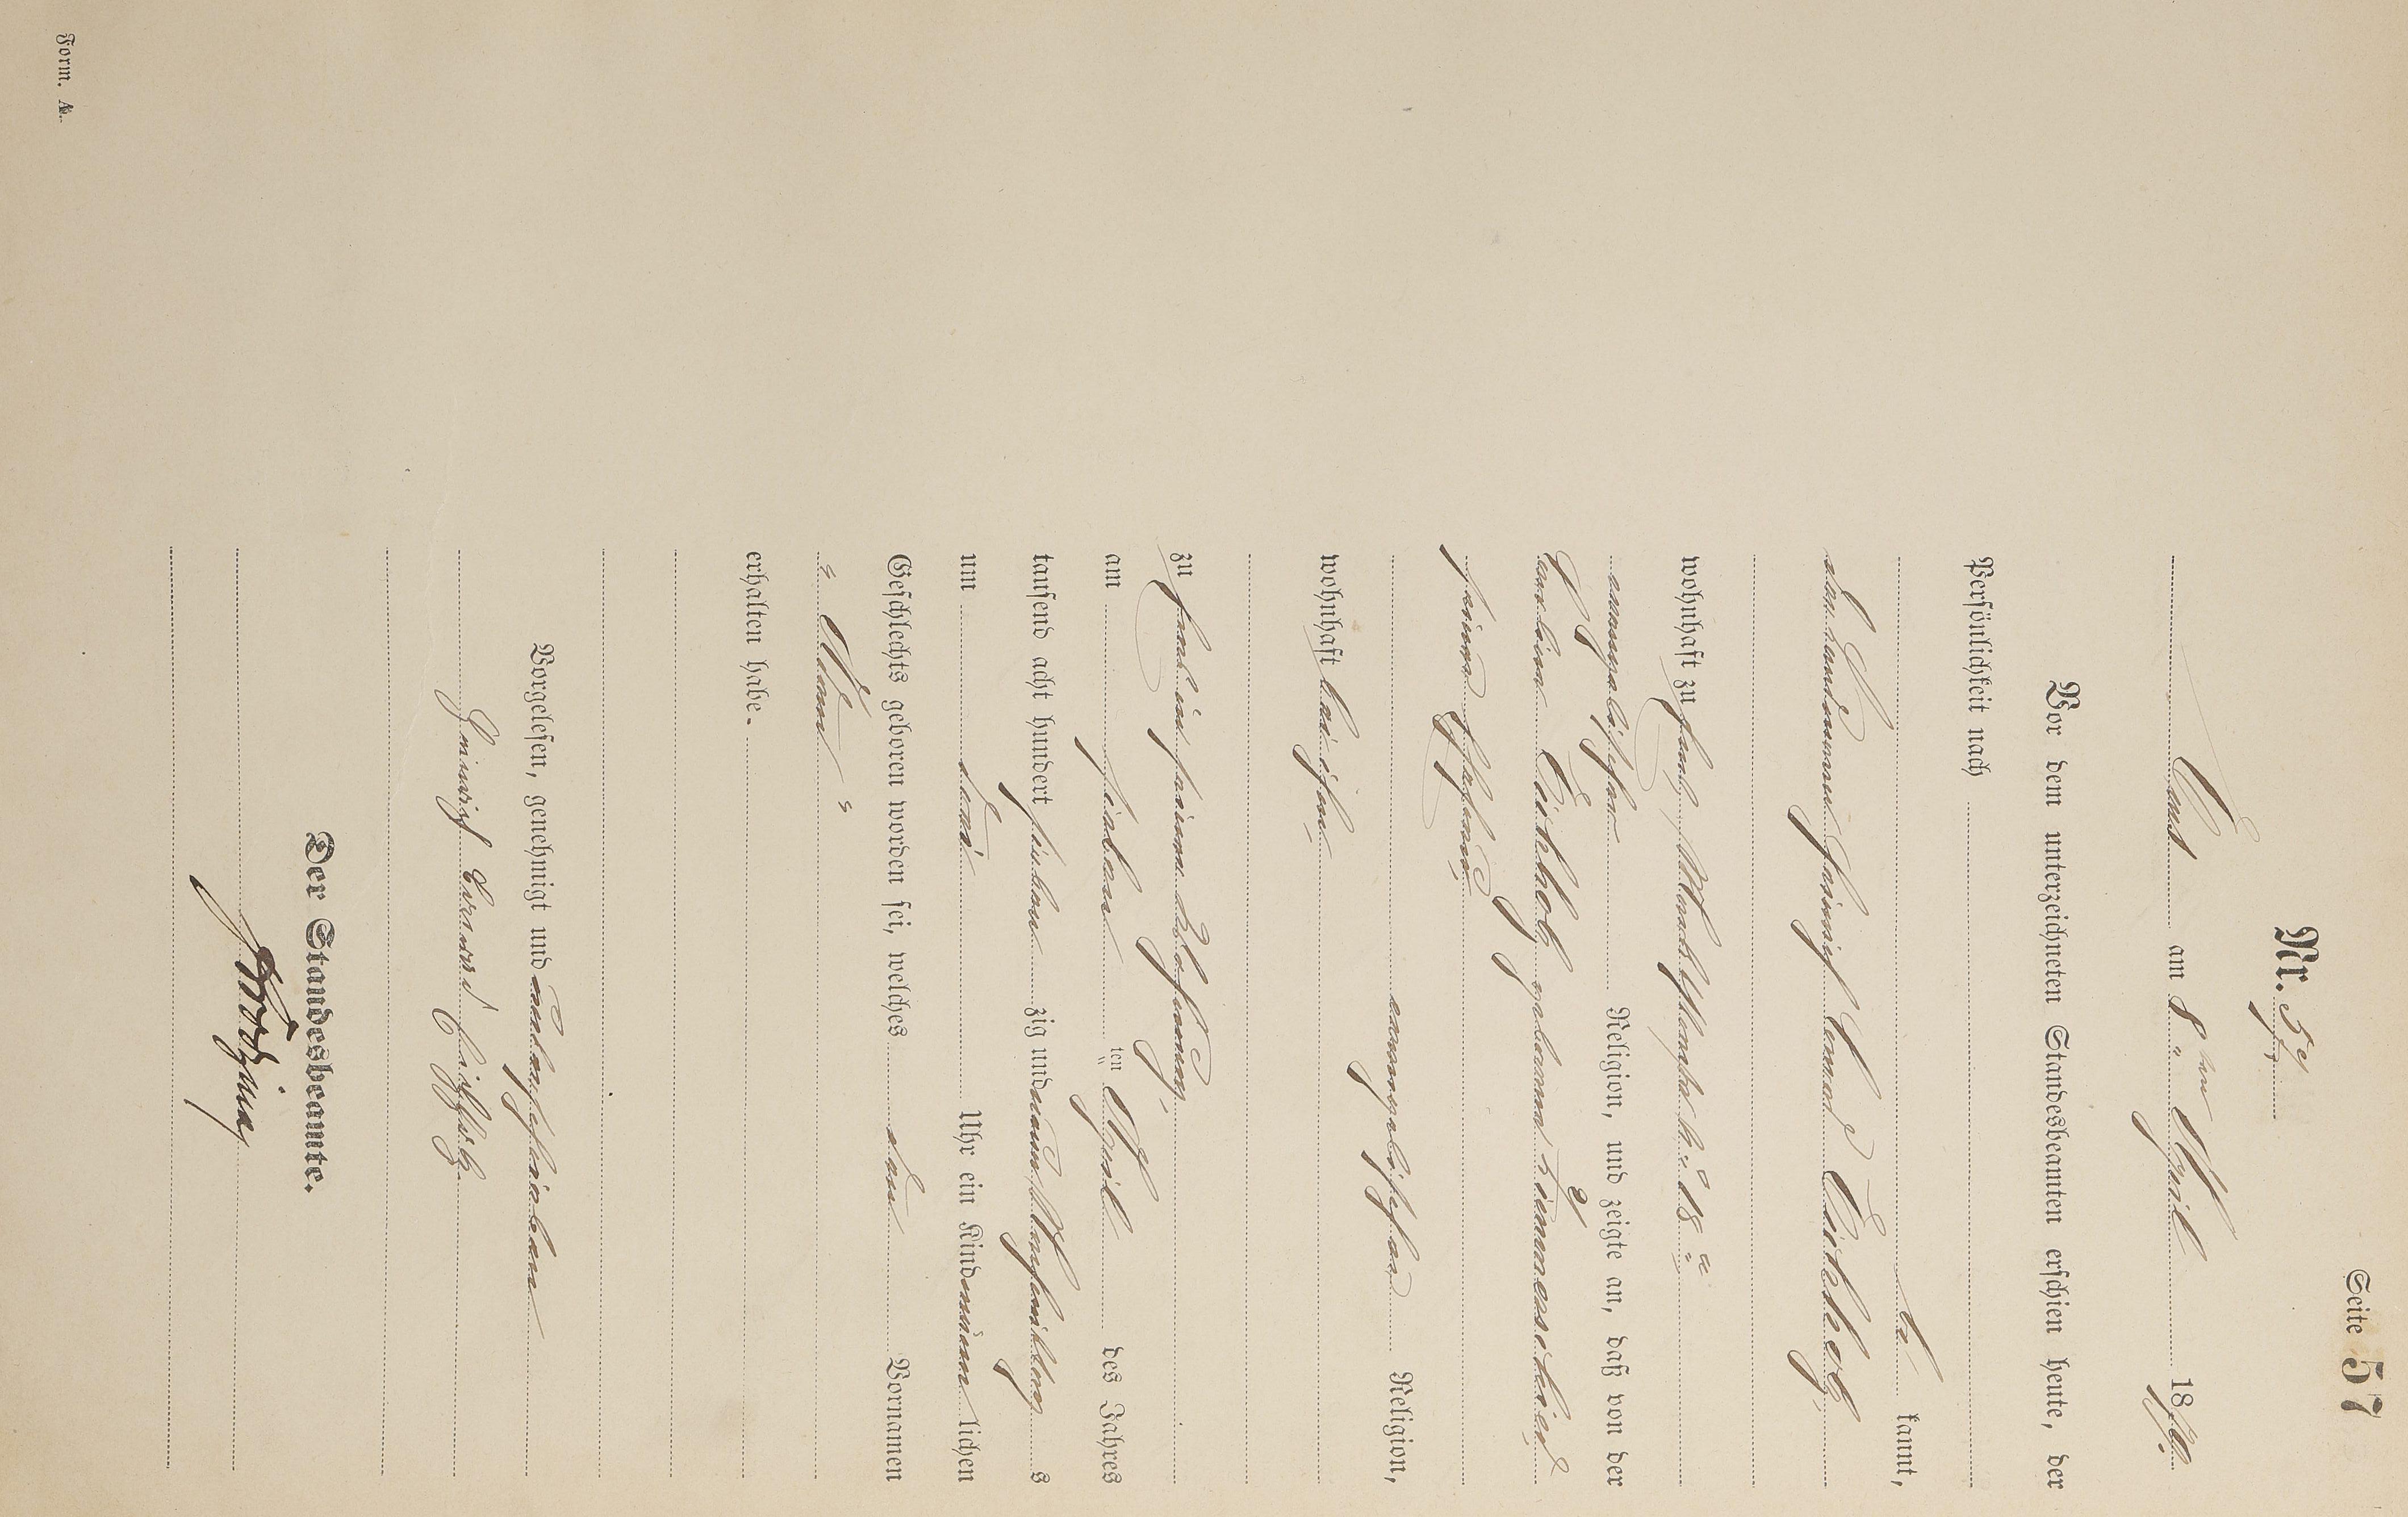 Seite 57
Nr. 57.
Caub am 8ten April 1879.
Vor dem unterzeichneten Standesbeamten erschien heute, der
Persönlichkeit nach
be kannt,
der Landmann Heinrich Conrad Eichholz
wohnhaft zu
evangelischer Religion, und zeigte an, daß von der
Carline Eichholz geborene Himmerschied
seiner Ehefrau,
evangelischer Religion,
wohnhaft bei ihm,
zu in seiner Wohnung,
am sieben ten April des Jahres
tausend acht hundert sieben zig und neun, Nachmittags
um drei Uhr ein Kind männ lichen
Geschlechts geboren worden sei, welches den Vornamen
erhalten habe.
Vorgelesen, genehmigt und unterschrieben
Heinrich Conrad Eichholz
Der Standesbeamte.
Form. A.